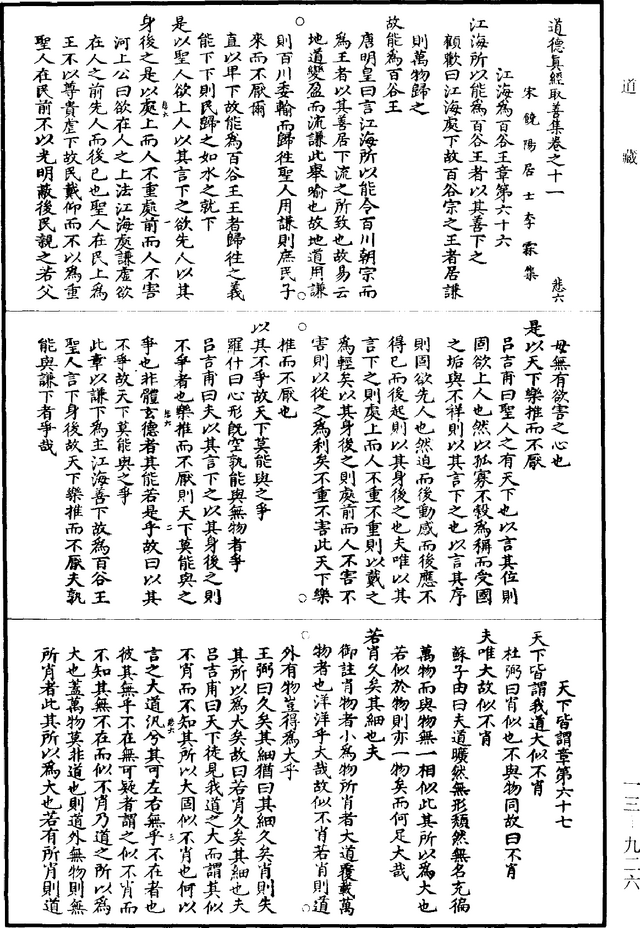 道藏
道德真經取善集卷之十一 悲六
宋饒陽居士李霖集
江海為百谷王章第六十六
江海所以能為百谷王者以其善下之
顧歡曰江海處下故百谷宗之王者居謙
則萬物歸之
故能為百谷王
唐明皇曰言江海所以能令百川朝宗而
為王者以其善居下流之所致也故易云
地道變盈而流謙此舉喻也故地道用謙
則百川委輸而歸往聖人用謙則庶民子
來而不厭爾
直以卑下故能為百谷王王者歸往之義
能下下則民歸之如水之就下
是以聖人欲上人以其言下之欲先人以其
身後之是以處上而人不重處前而人不害
河上公曰欲在人之上法江海處謙虛欲
在人之前先人而後己也聖人在民上為
王不以尊貴虐下故民戴仰而不以為重
聖人在民前不以光明蔽後民親之若父
母無有欲害之心也
是以天下樂推而不厭
呂吉甫曰聖人之有天下也以言其位則
固欲上人也然以孤寡不穀為稱而受國
之垢與不祥則以其言下之也以言其序
則固欲先人也然迫而後動感而後應不
得已而後起則以其身後之也夫唯以其
言下之則處上而人不重不重則以戴之
為輕矣以其身後之則處前而人不害不
害則以從之為利矣不重不害此天下樂
推而不厭也
以其不爭故天下莫能與之爭
羅什曰心形既空孰能與無物者爭
呂吉甫曰夫以其言下之以其身後之則
不爭者也樂推而不厭則天下莫能與之
爭也非體玄德者其能若是乎故曰以其
不爭故天下莫能與之爭
此章以謙下為主江海善下故為百谷王
聖人言下身後故天下樂推而不厭夫孰
能與謙下者爭哉
天下皆謂章第六十七
天下皆謂我道大似不肖
杜弼曰肖似也不與物同故曰不肖
夫唯大故似不肖
蘇子由曰夫道曠然無形頹然無名充徧
萬物而與物無一相似此其所以為大也
若似於物則亦一物矣而何足大哉
若肖久矣其細也夫
御註肖物者小為物所肖者大道覆載萬
物者也洋洋乎大哉故似不肖若肖則道
外有物豈得為大乎
王弼曰久矣其細猶曰其細久矣肖則失
其所以為大矣故曰若肖久矣其細也夫
呂吉甫曰天下徒見我道之大而謂其似
不肖而不知其所以大固似不肖也何以
言之大道汎兮其可左右無乎不在者也
彼其無乎不在無可疑者謂之似不肖而
不知其無不在而似不肖乃道之所以為
大也蓋萬物莫非道也則道外無物則無
所肖者此其所以為大也若有所肖則道
一三‧九二六